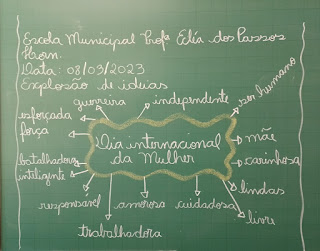 Escola Municipal Profª Elía dos Passos
Hoin.
Data: 08/03/2023
Explosão de ideias
guerreira
independente
ser humano
esforçada
força
Dia internacional
da Mulher
mãe
batalhadora
inteligente
carinhosa
lindas
responsável
amorosa
cuidadosa
livre
trabalhadora